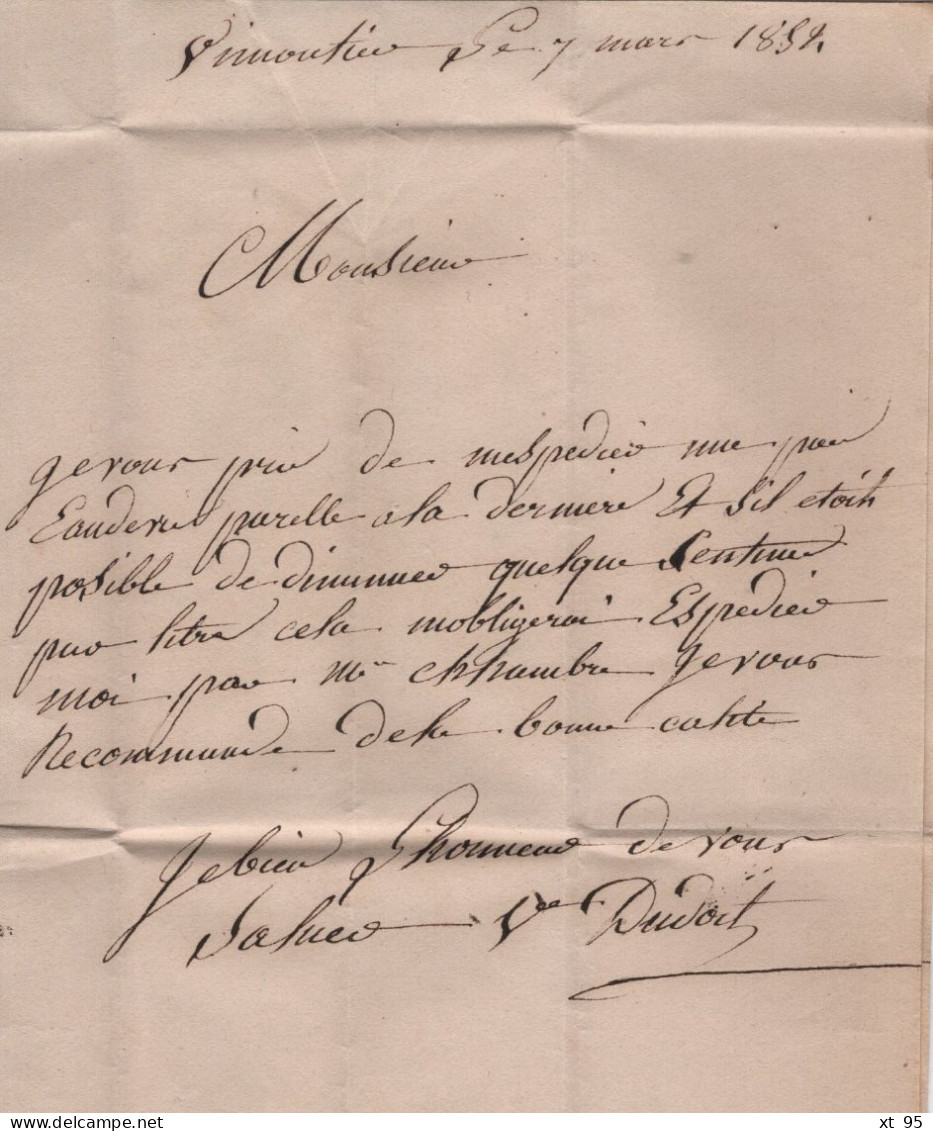 Vimoutier Le 7 mars 1852
Monsieur
Je vous prie de mespedier une pier
Eaudevie parelle a la derniere Et S'il etoit
posible de diminuer quelque Sentime
par litre cela mobligerai Espedier
moi par mr chhambre Je vous
Recommande dela bonne calité
Je bien Lhonneur de vous
Saluer Ve Dudoit
delcampe.net
xt 95